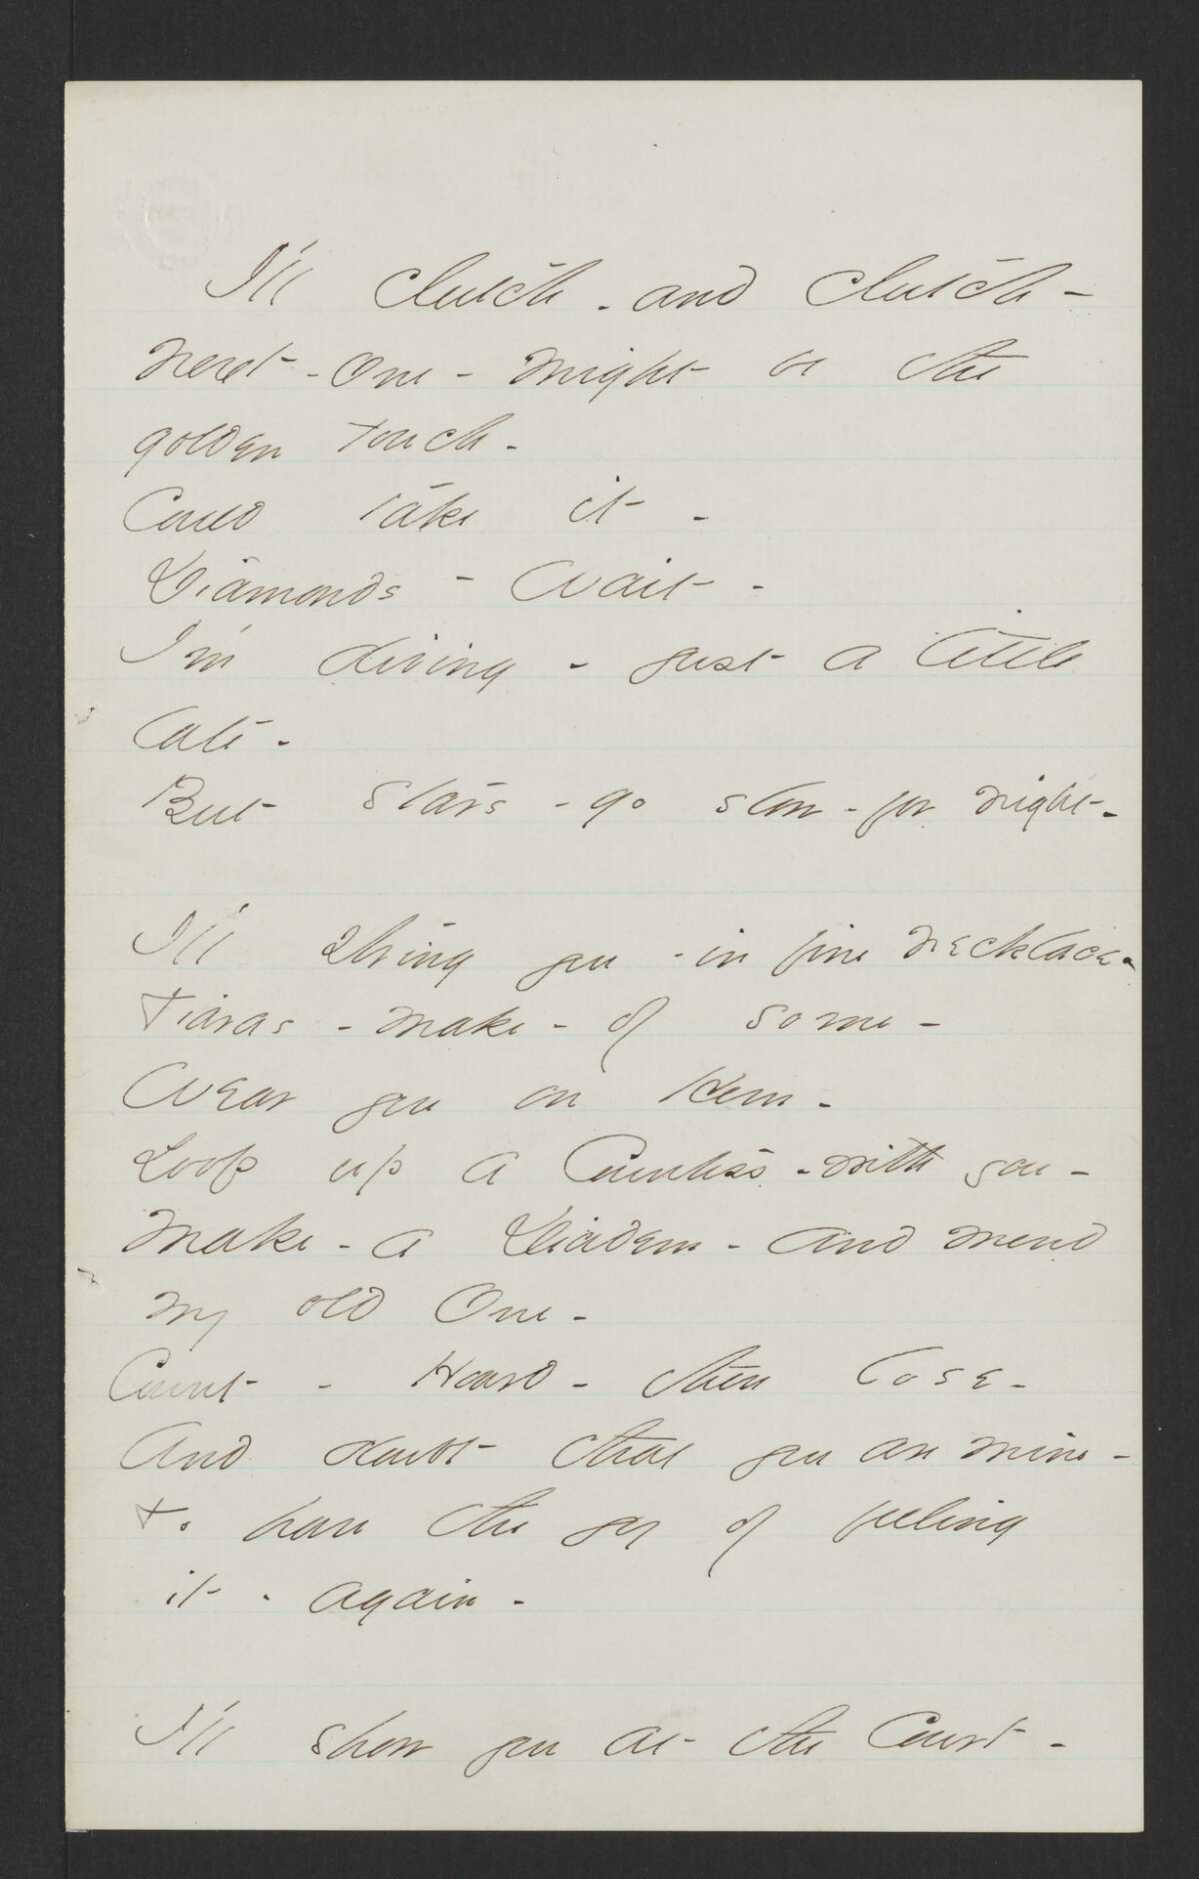 I'll clutch - and clutch -
Next - One - Might be the
golden touch -
Could take it -
Diamonds - Wait -
I'm diving - just a little
late -
But stars - go slow - for night -
I'll string you - in fine necklace -
Tiaras - make - of some -
Wear you on Hem -
Loop up a Countess - with you -
Make - a Diadem - and mend
my old One -
Count - Hoard - then lose -
And doubt that you are mine -
To have the joy of feeling
it - again -
I'll show you at the Court -